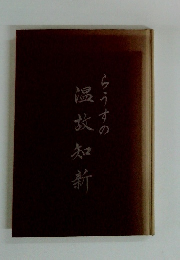 らうすの
温故知新